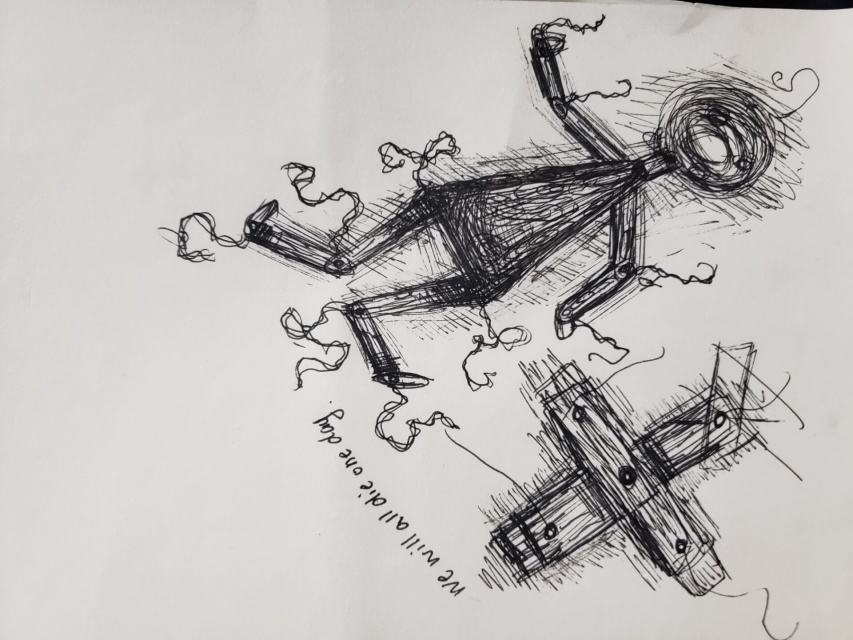 We will all die one day.